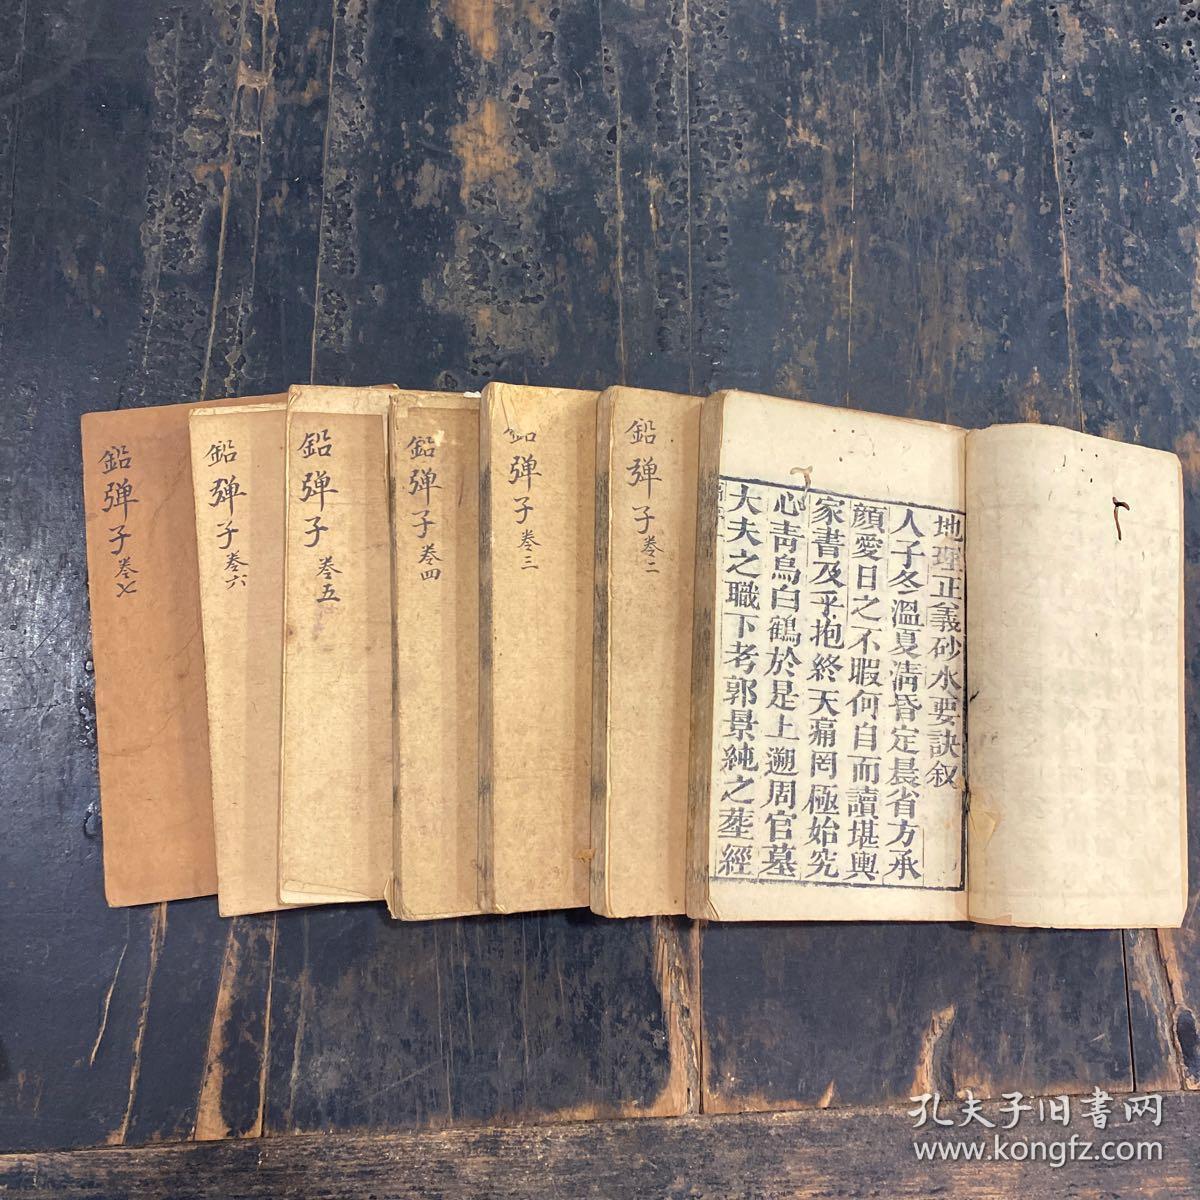 地理正義砂水要訣叙
人子冬溫夏凊昏定晨省方承
顔愛日之不暇何自而讀堪輿
家書及乎抱終天痛罔極始究
心靑烏白鶴於是上遡周官墓
大夫之職下考郭景純之塟經
鉛弾子 卷二
鉛弾子 卷三
鉛弾子 卷四
鉛弾子 卷五
鉛弾子 卷六
鉛弾子 卷七
孔夫子旧書网
www.kongfz.com